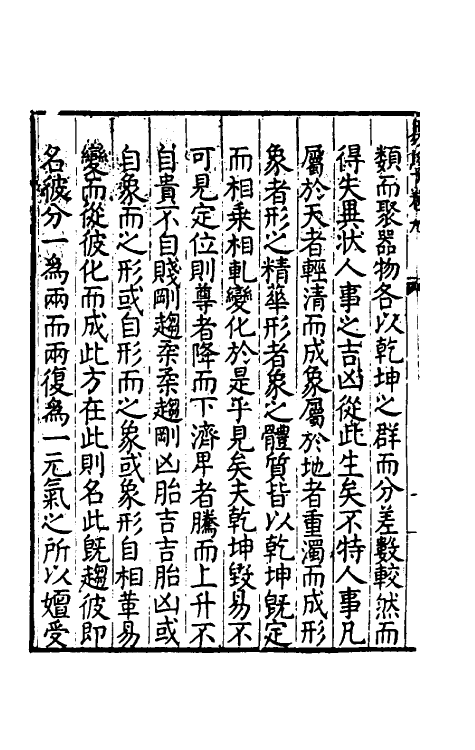 類而聚器物各以乾坤之群而分差數較然而
得失異狀人事之吉凶從此生矣不特人事凡
屬於天者輕清而成象屬於地者重濁而成形
象者形之精華形者象之體質皆以乾坤旣定
而相乗相軋變化於是乎見矣夫乾坤毀易不
可見定位則尊者降而下濟卑者騰而上升不
自貴不自賤剛趨柔柔趨剛凶胎吉吉胎凶或
自象而之形或自形而之象或象形自相革易
變而從彼化而成此方在此則名此旣趨彼即
名彼分一爲兩而兩復爲一元氣之所以嬗受